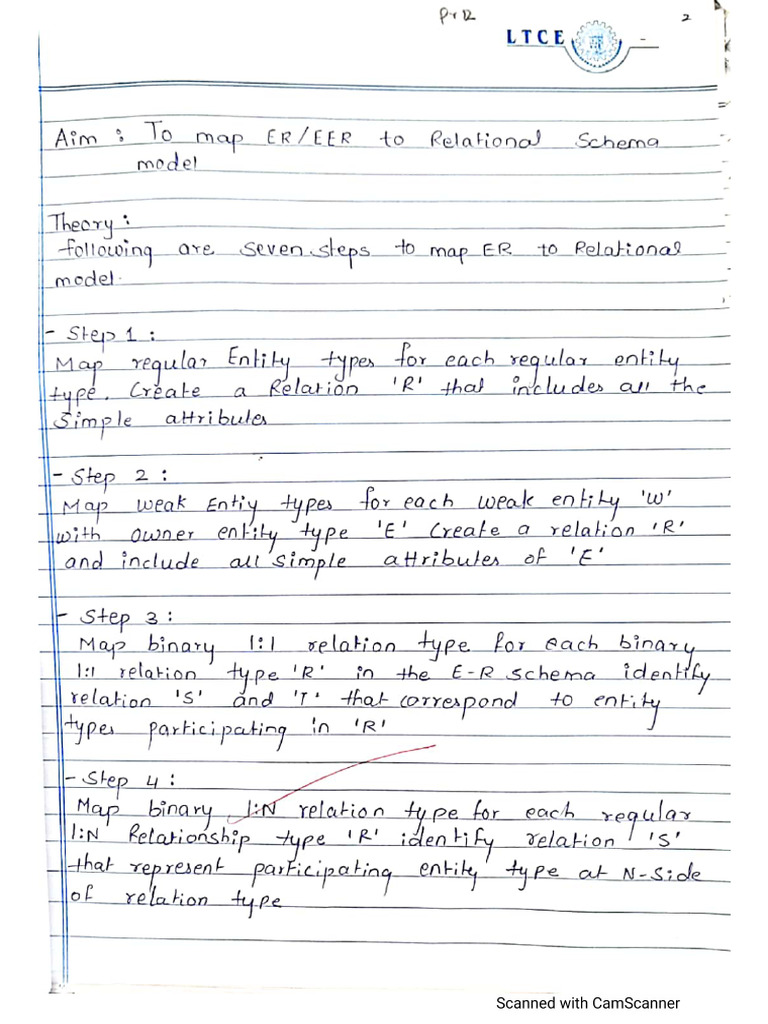 Pr 12
2
LTCE
Aim : To map ER/EER to Relational Schema
model
Theory :
following are seven steps to map ER to Relational
model.
- Step 1 :
Map regular Entity types for each regular entity
type. Create a Relation 'R' that includes all the
Simple attributes
- Step 2 :
Map weak Entiy types for each weak entity 'W'
with owner entity type 'E' Create a relation 'R'
and include all simple attributes of 'E'
- Step 3 :
Map binary 1:1 relation type for each binary
1:1 relation type 'R' in the E-R schema identify
relation 'S' and 'T' that correspond to entity
types participating in 'R'
- Step 4 :
Map binary 1:N relation type for each regular
1:N Relationship type 'R' identify relation 'S'
that represent participating entity type at N-Side
of relation type
Scanned with CamScanner